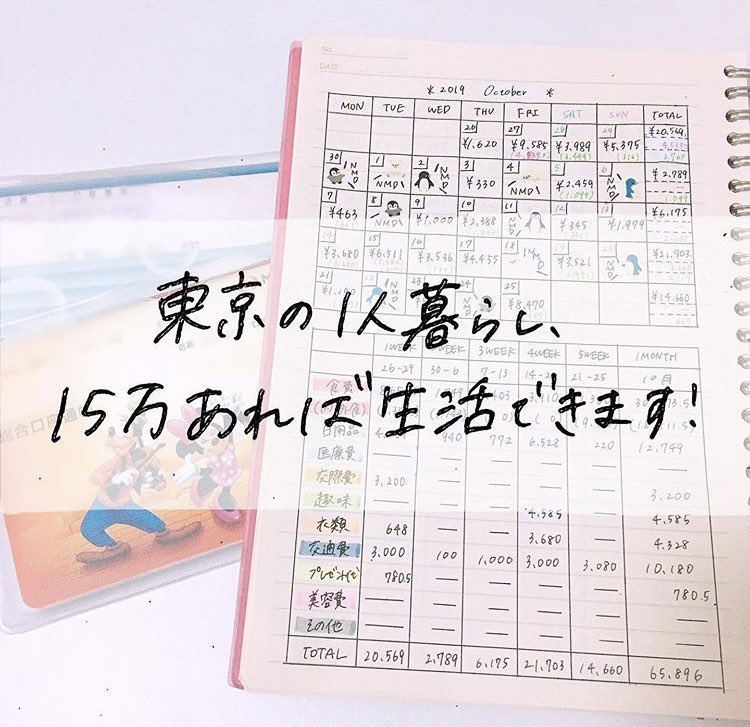 NO.
DATE
* 2019 October *
MON TUE WED THU FRI SAT SUN TOTAL
26 27 28 29 ¥20.569
¥1.620 ¥9.585 ¥3.989 ¥5.375
30 1 2 3 4 5 6 ¥2.789
NMD NMD NMD ¥330 NMD ¥2.459 NMD
7 8 9 10 11 12 13 ¥6.175
¥463 NMD ¥1.000 ¥2.388 NMD ¥345 ¥1.979
14 15 16 17 18 19 20 ¥21.703
¥3.680 ¥6.511 ¥3.536 ¥4.455 NMD ¥3.521 NMD
21 22 23 24 25 ¥14.660
NMD ¥8.470
東京の1人暮らし、
15万あれば生活できます!
1WEEK 2WEEK 3WEEK 4WEEK 5WEEK 1MONTH
26-29 30-6 7-13 14-20 21-25 10月
食費
日用品 940 772 6.528 220 12,749
医療費 — — — — —
交際費 3,200 — — — —
趣味 — — — — 3.200
衣類 648 — — 4.585 — 4.585
3.680 4.328
交通費 3.000 100 1,000 3,000 3,080 10,180
プレゼント代 780.5 — — — — 780.5
美容費 — — — — — —
その他 — — — — — —
TOTAL 20.569 2,789 6,175 21,703 14,660 65,896